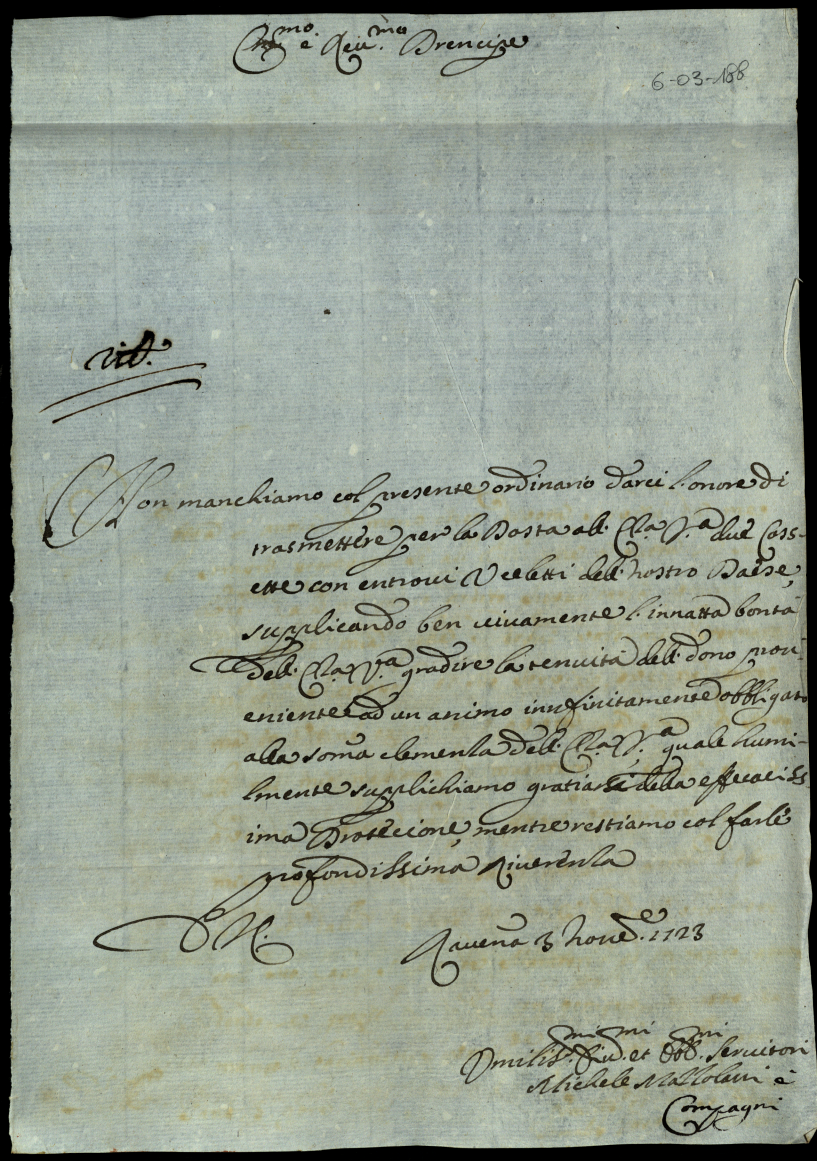 Em.mo e Reu.mo Prencipe
6-03-188
Non manchiamo col presente ordinario darci l'onore di
trasmettere per la Posta all' Em.a V.a due Cass-
ette con entroui Vceletti dell' nostro Paese,
supplicando ben viuamente l'innatta bontà
dell' Em.a V.a gradire la tenuità dell' dono prou-
eniente ad un animo innfinitamente obbligato
alla som̃a clemenza dell' Em.a V.a quale humi-
lmente supplichiamo gratiarsi della efficaciss-
ima Protecione, mentre restiamo col farle
profondissima Riuerenza
Rauenã 3 Noue.e 1723
Vmilis.mi Diu.mi et Obb.mi Seruitori
Michele e
Compagni